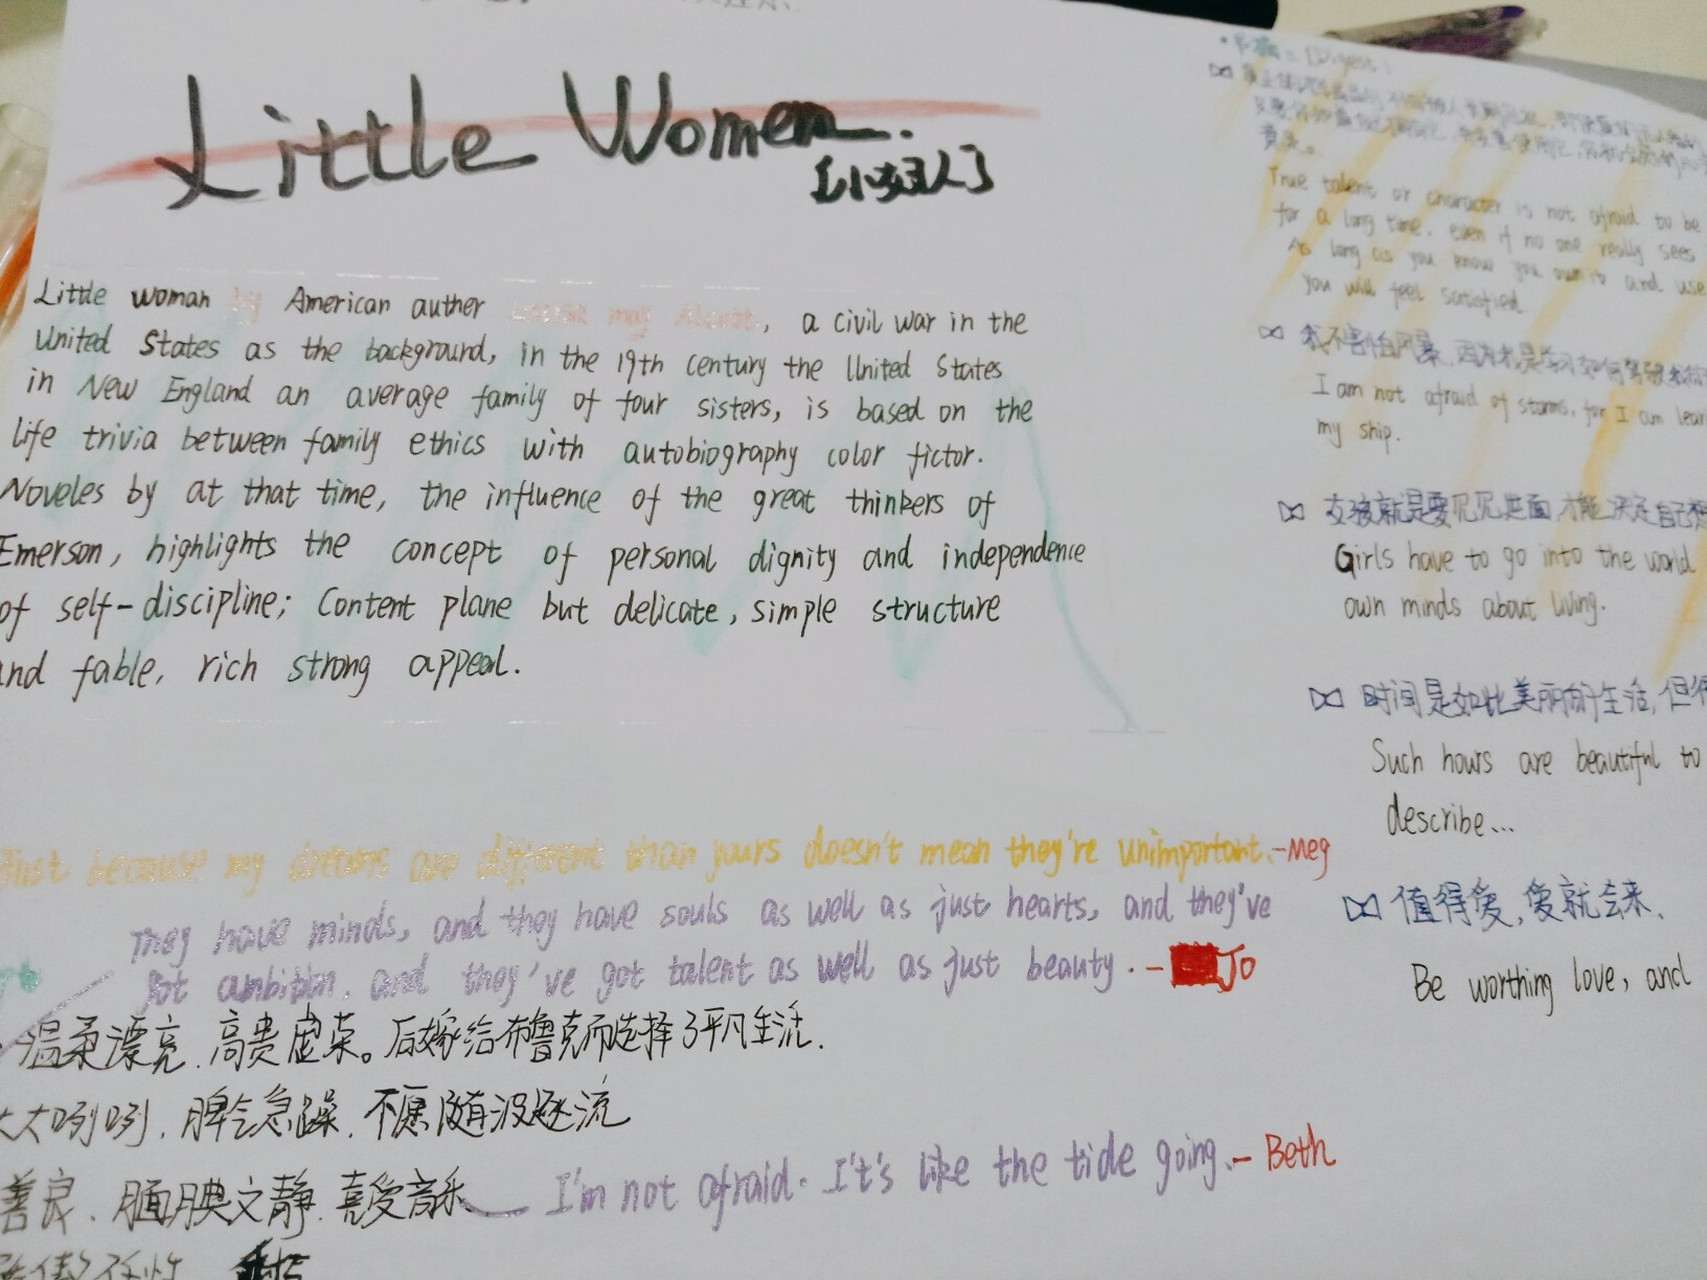 Little Women.
【小妇人】
Little woman by American auther Louisa may Alcott, a civil war in the
United States as the background, in the 19th century the United States
in New England an average family of four sisters, is based on the
life trivia between family ethics with autobiography color fictor.
Noveles by at that time, the influence of the great thinkers of
Emerson, highlights the concept of personal dignity and independence
of self-discipline; Content plane but delicate, simple structure
and fable, rich strong appeal.
Just because my dreams are different than yours doesn't mean they're unimportant.-Meg
They have minds, and they have souls as well as just hearts, and they've
got ambition, and they've got talent as well as just beauty.-Jo
温柔漂亮.高贵虚荣。后嫁给布鲁克而选择了平凡生活.
大大咧咧.脾气急躁.不愿随波逐流
善良.腼腆文静.喜爱音乐
I'm not afraid. I't's like the tide going.- Beth
(Digest)
True talent or character is not afraid to be
for a long time. even if no one really sees
As long as you know you own it and use
you will feel satisfied.
我不害怕风暴.因为我是学习如何驾驶
I am not afraid of storms, for I am lear
my ship.
女孩就是要见见世面,才能决定自己
Girls have to go into the world
own minds about living.
时间是如此美丽的生活,但
Such hours are beautiful to
describe...
值得爱,爱就会来.
Be worthing love, and